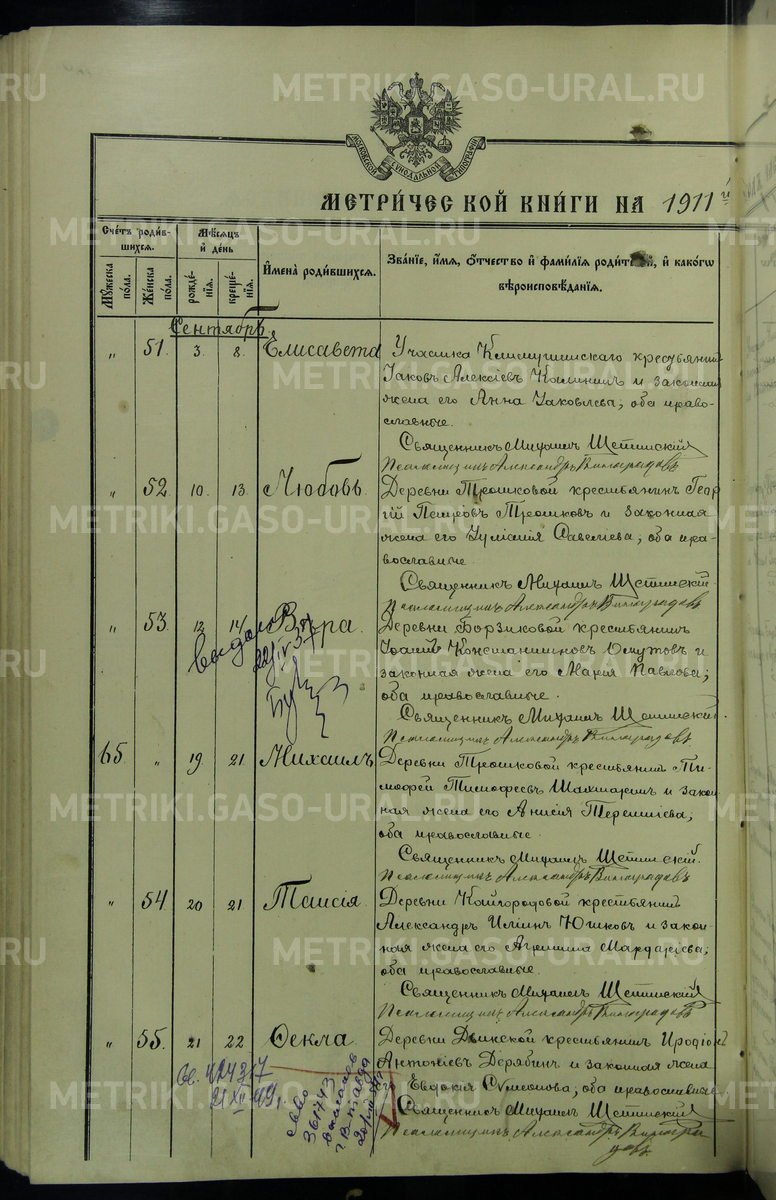 МОСКОВСКОЙ СѴНОДАЛЬНОЙ ТИПОГРАФІИ
МЕТРИ́ЧЕСКОЙ КНИ́ГИ НА 1911 й
Счетъ роди́вшихся.
Мꙋжеска по́ла.
Же́нска по́ла.
Мѣ́сяцъ и҆ де́нь
рожде́нїѧ.
креще́нїѧ.
И҆мена̀ роди́вшихсѧ.
Зва́нїе, и҆́мѧ, ѻ҆́тчество и҆ фамилїѧ роди́телей, и҆ како́гѡ вѣроисповѣ́данїѧ.
Сентябрь.
" 51. 3. 8. Елисавета
Участка Климушинскаго крестьянинъ
Іаковъ Алексіевъ Калининъ и законная
жена его Анна Іаковлева; оба право-
славные.
Священникъ Михаилъ Щепинскій
Псаломщикъ Александръ Виноградовъ
" 52. 10. 13. Любовь.
Деревни Трошковой крестьянинъ Геор
гій Петровъ Трошковъ и законная
жена его Іуліанія Савеліева; оба пра-
вославные
Священникъ Михаилъ Щепинскій
Псаломщикъ Александръ Виноградовъ
" 53. 12 14 Вѣра.
Деревни Борзиковой крестьянинъ
Іоаннъ Константиновъ Омутовъ и
законная жена его Марія Павлова;
оба православные.
Священникъ Михаилъ Щепинскій
Псаломщикъ Александръ Виноградовъ
65. " 19 21. Михаилъ
Деревни Трошковой крестьянинъ Ти-
мофей Тимофеевъ Шахматинъ и закон
ная жена его Анисія Терентіева;
оба православные.
Священникъ Михаилъ Щепинскій.
Псаломщикъ Александръ Виноградовъ
" 54. 20 21 Таисія.
Деревни Кайгородовой крестьянинъ
Александръ Иліинъ Юшковъ и закон-
ная жена его Агриппина Мардаріева;
оба православные.
Священникъ Михаилъ Щепинскій
Псаломщикъ Александръ Виноградовъ
" 55. 21 22 Ѳекла
Деревни Двинской крестьянинъ Иродіонъ
Антоніевъ Дерябинъ и законная жена
его Евдокія Сѵмеонова; оба православные.
Священникъ Михаилъ Щепинскій
Псаломщикъ Александръ Виногра
довъ.
Св. 42437
21 XI 49.
361743
METRIKI.GASO-URAL.RU